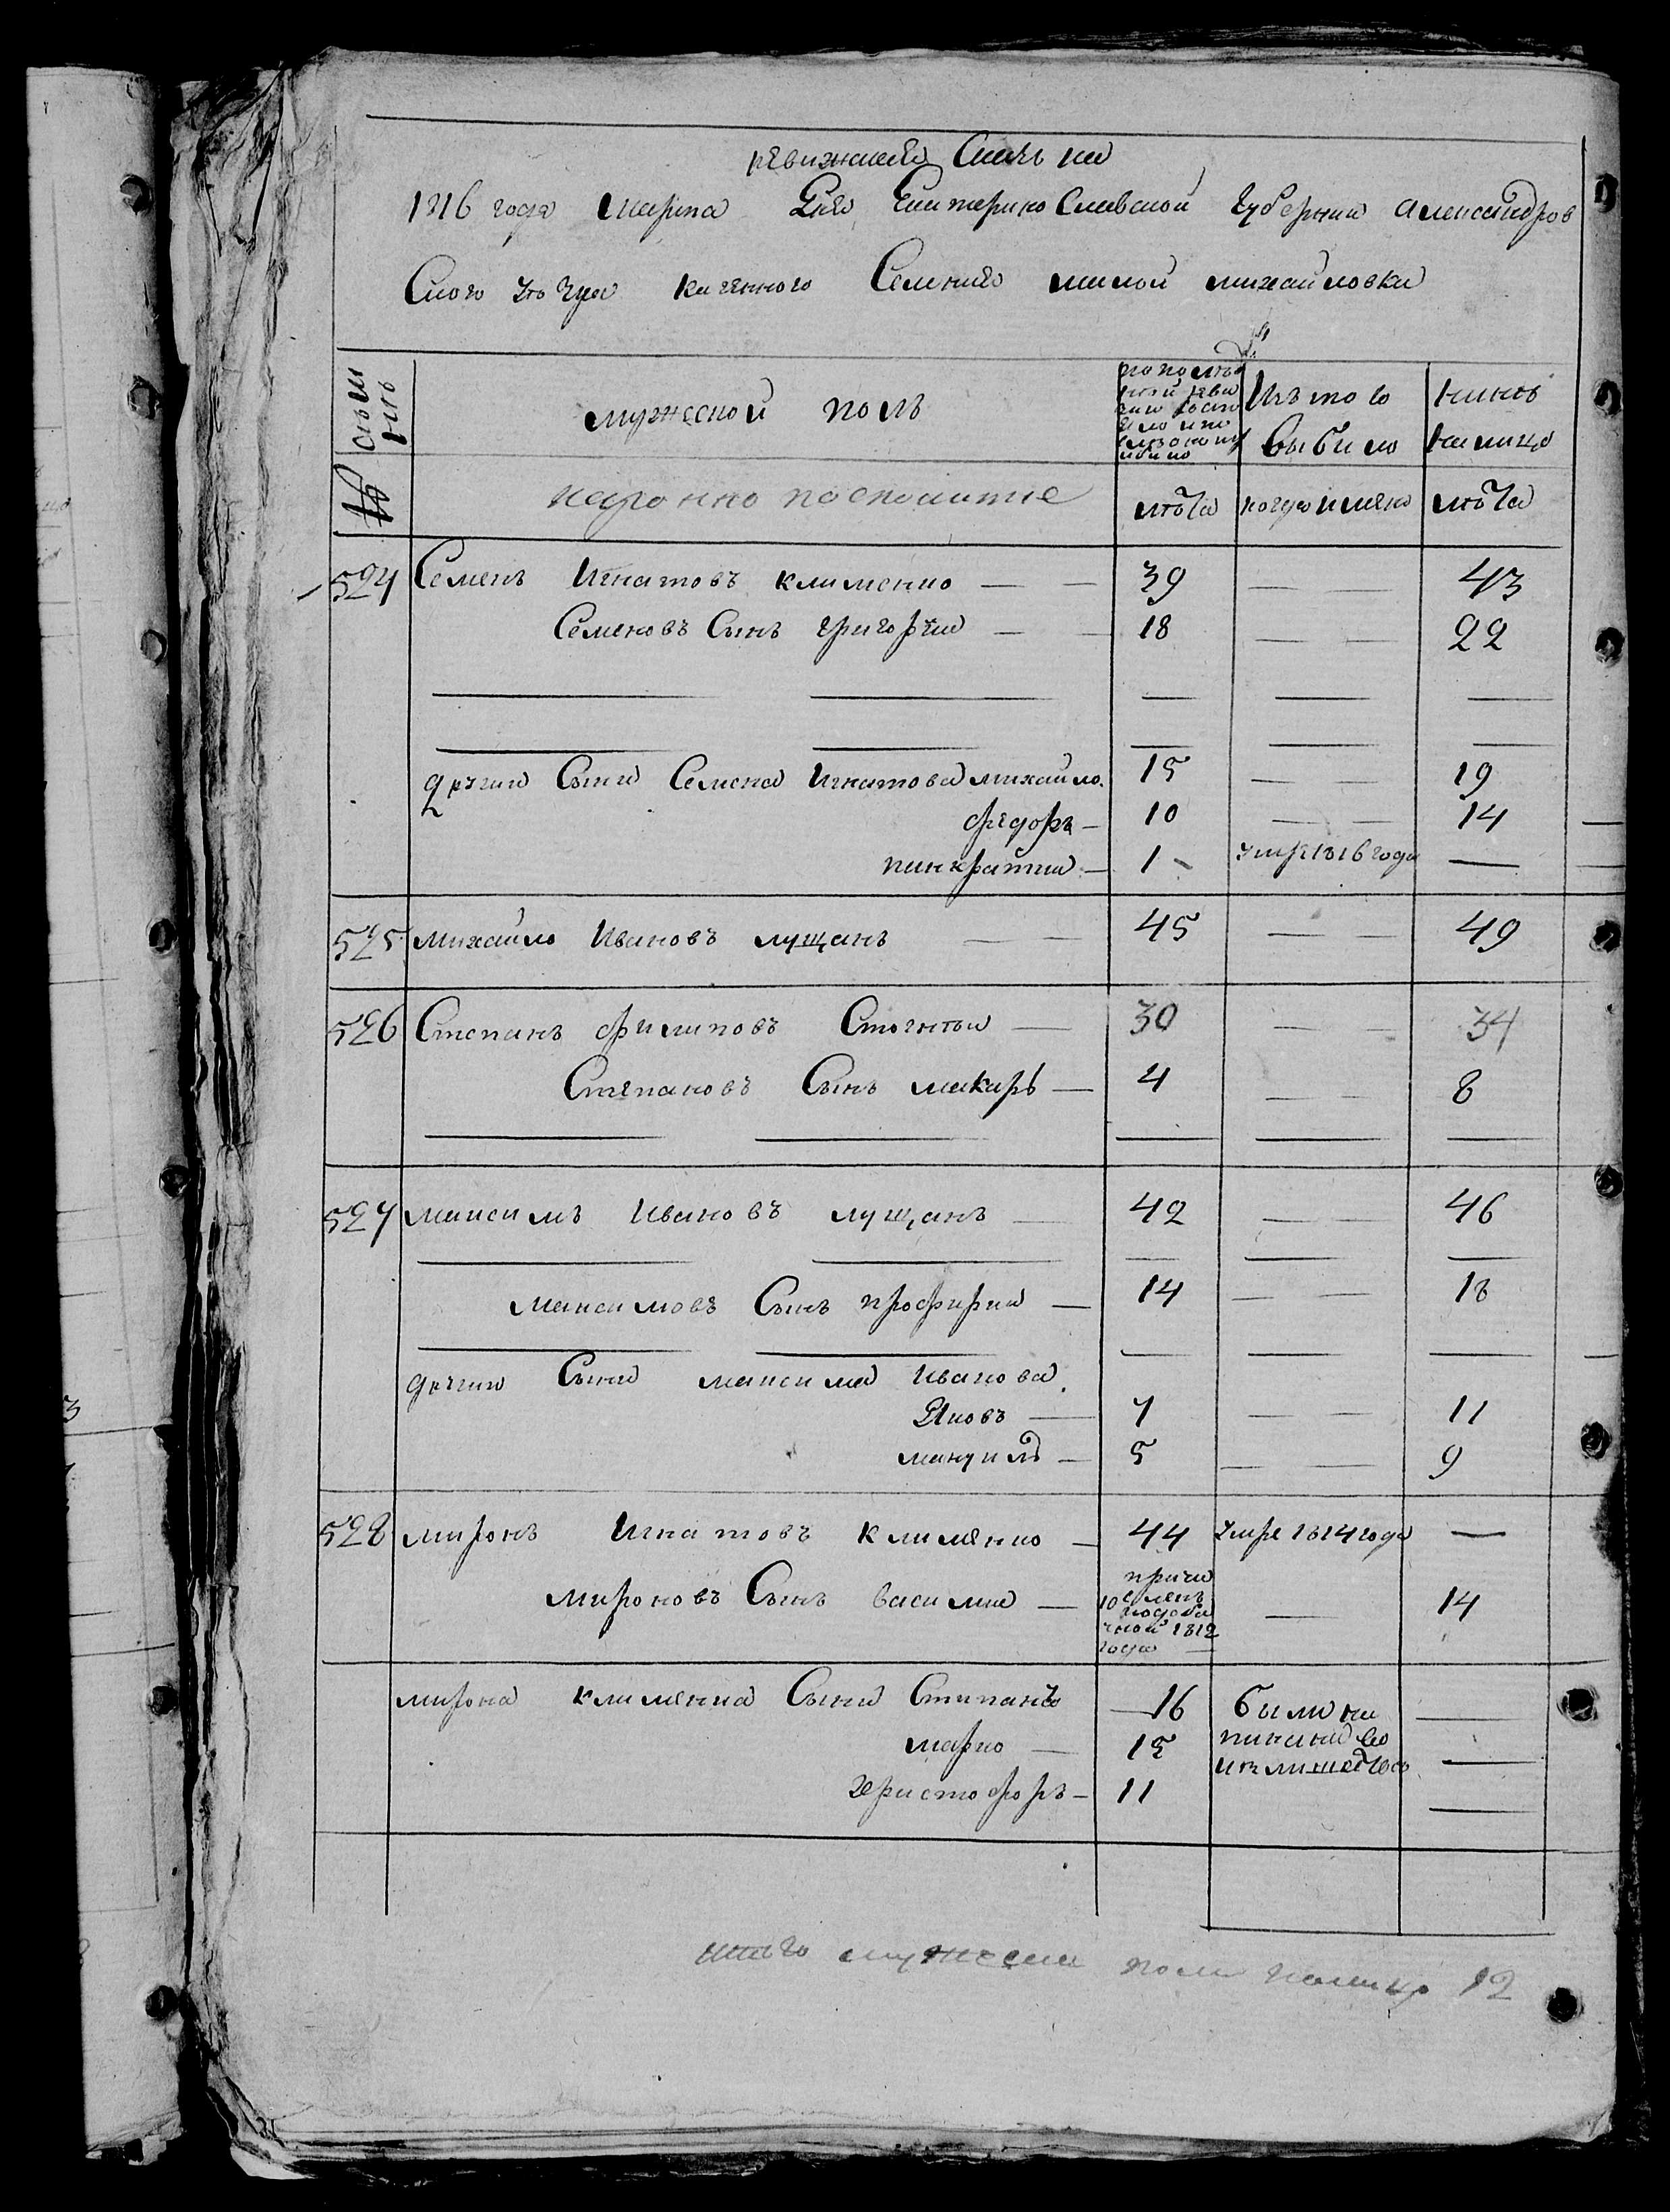 ревижская Скаска
1816 года марта Дня Екатеринославской губернии александров
Скаго уезда казенного Селения малой михайловки
семьи
мужеской полъ
по последней ревизии состояло и после оной прибыло
Изъ того выбыло
ныне налицо
№
коронно посполитие
лета когда имено лета
524 Семенъ Игнатовъ клименко — — 39 — — 43
Семеновъ Сынъ григорий — — 18 — — 22
другии Сыни Семена Игнатова михайло. 15 — — 19
федоръ — 10 — — 14
панкратий — 1 умре 1816 года —
525 михайло Ивановъ лущанъ — — 45 — — 49
526 Степанъ филиповъ — 30 — — 34
Степановъ Сынъ макаръ — 4 — — 8
527 максимъ Ивановъ лущанъ — 42 — — 46
максимовъ Сынъ профирий — 14 — — 18
другии Сыни максима Иванова
Яковъ — 7 — — 11
мануилъ — 5 — — 9
528 миронъ Игнатовъ клименко — 44 умре 1814 года —
мироновъ Сынъ василий — 10 1812 года — 14
мирона клименка Сыни Степанъ — 16 были на —
марко — 15 —
христофоръ — 11 —
итого мужеска пола налицо 12